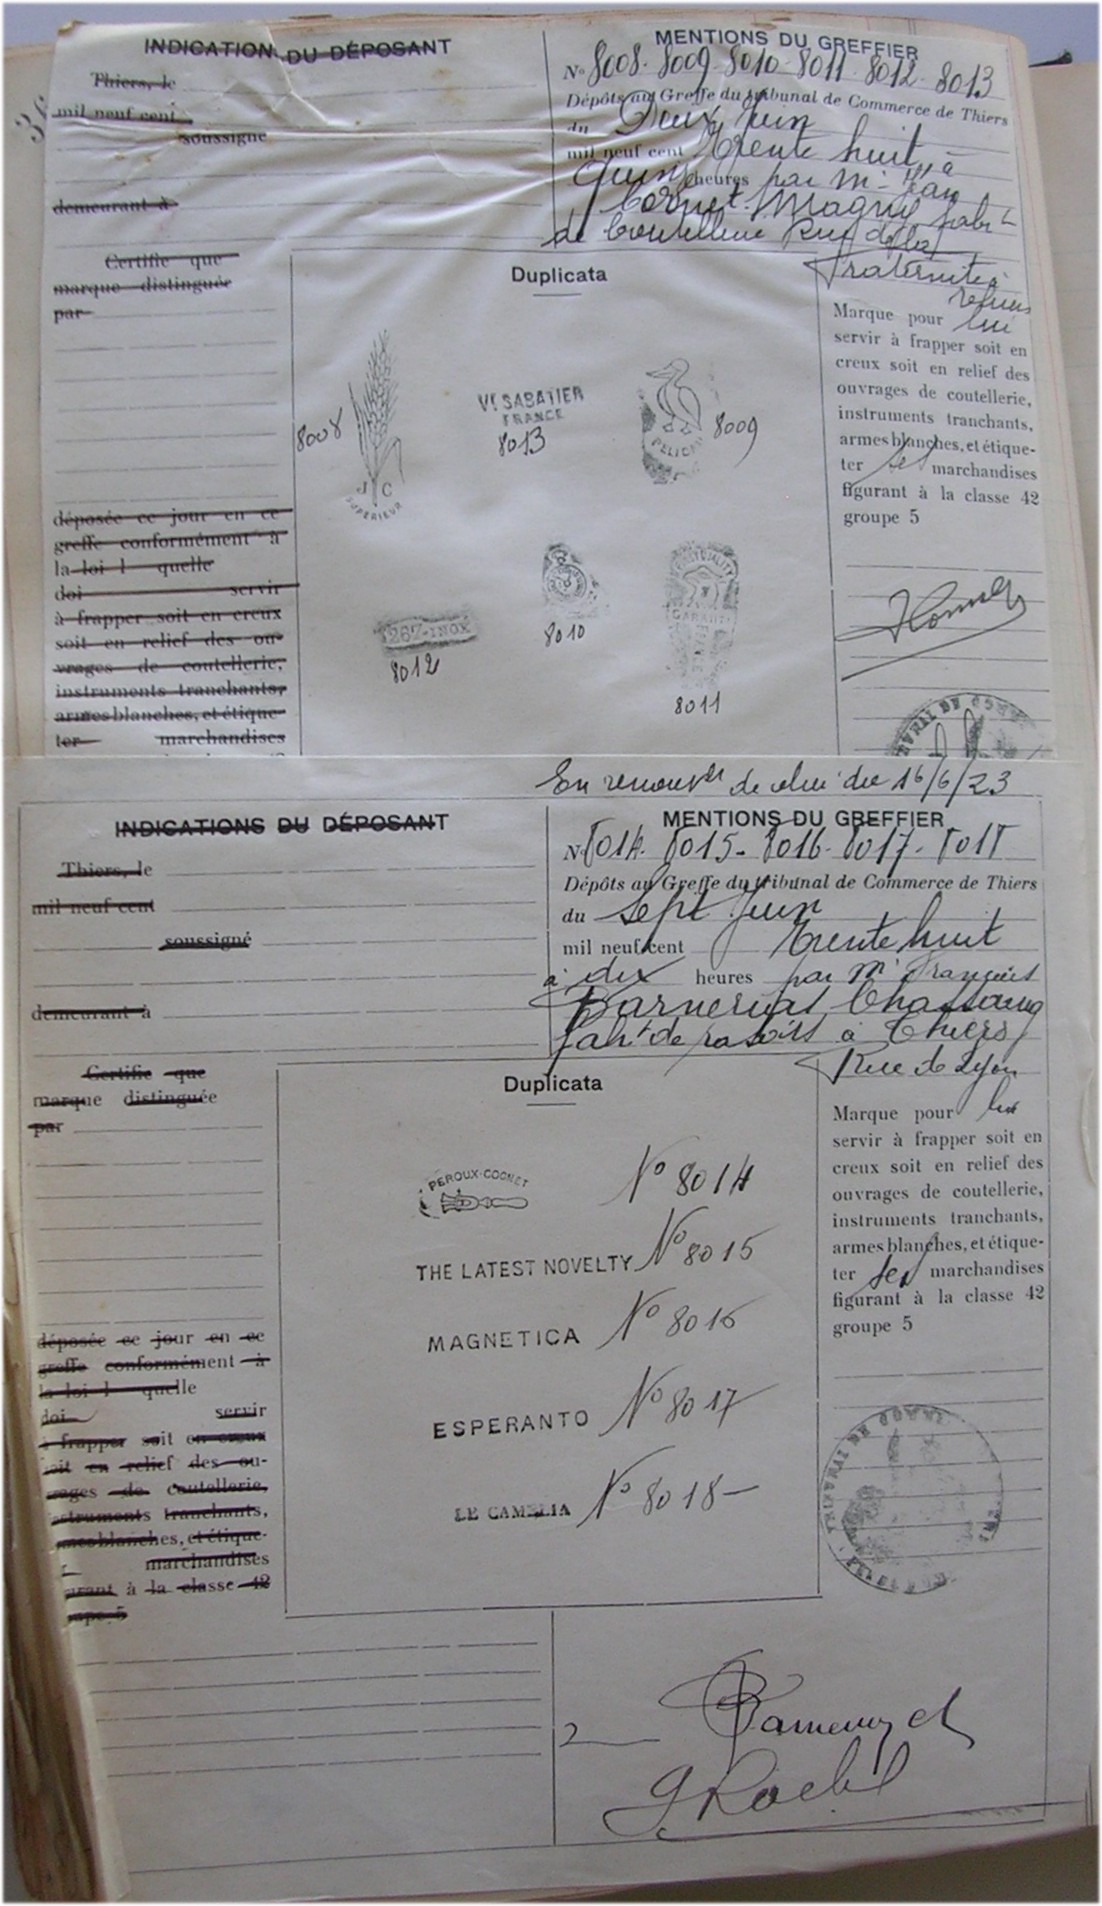 INDICATION DU DÉPOSANT
Thiers, le
mil neuf cent
soussigné
demeurant à
MENTIONS DU GREFFIER
No 8008. 8009. 8010. 8011. 8012. 8013
Dépôts au Greffe du tribunal de Commerce de Thiers
du Deux Juin
mil neuf cent Trente huit à
heures par Mr Jean
Magny fabt
de Coutellerie Rue de la
Fraternité à
Certifie que
marque distinguée
par
Duplicata
8008
J C
SUPERIEUR
VE SABATIER
FRANCE
8013
PELICAN
8009
287-INOX
8012
8010
GARANTI
8011
Marque pour lui
servir à frapper soit en
creux soit en relief des
ouvrages de coutellerie,
instruments tranchants,
armes blanches, et étique-
ter ses marchandises
figurant à la classe 42
groupe 5
déposée ce jour en ce
greffe conformément à
la loi l quelle
doi servir
à frapper soit en creux
soit en relief des ou-
vrages de coutellerie,
instruments tranchants,
armes blanches, et étique-
ter marchandises
En renouvt de celui du 16/6/23
INDICATIONS DU DÉPOSANT
Thiers, le
mil neuf cent
soussigné
demeurant à
MENTIONS DU GREFFIER
No 8014. 8015. 8016. 8017. 8018
Dépôts au Greffe du tribunal de Commerce de Thiers
du Sept Juin
mil neuf cent Trente huit
à dix heures par Mr François
Chassaing
fabt de rasoirs à Thiers
Rue de Lyon
Certifie que
marque distinguée
par
Duplicata
PEROUX-COGNET
No 8014
THE LATEST NOVELTY No 8015
MAGNETICA No 8016
ESPERANTO No 8017
LE CAMELIA No 8018
Marque pour lui
servir à frapper soit en
creux soit en relief des
ouvrages de coutellerie,
instruments tranchants,
armes blanches, et étique-
ter ses marchandises
figurant à la classe 42
groupe 5
déposée ce jour en ce
greffe conformément à
la loi l quelle
doi servir
à frapper soit en creux
soit en relief des ou-
rages de coutellerie,
struments tranchants,
mes blanches, et étique-
marchandises
urant à la classe 42
oupe 5
2